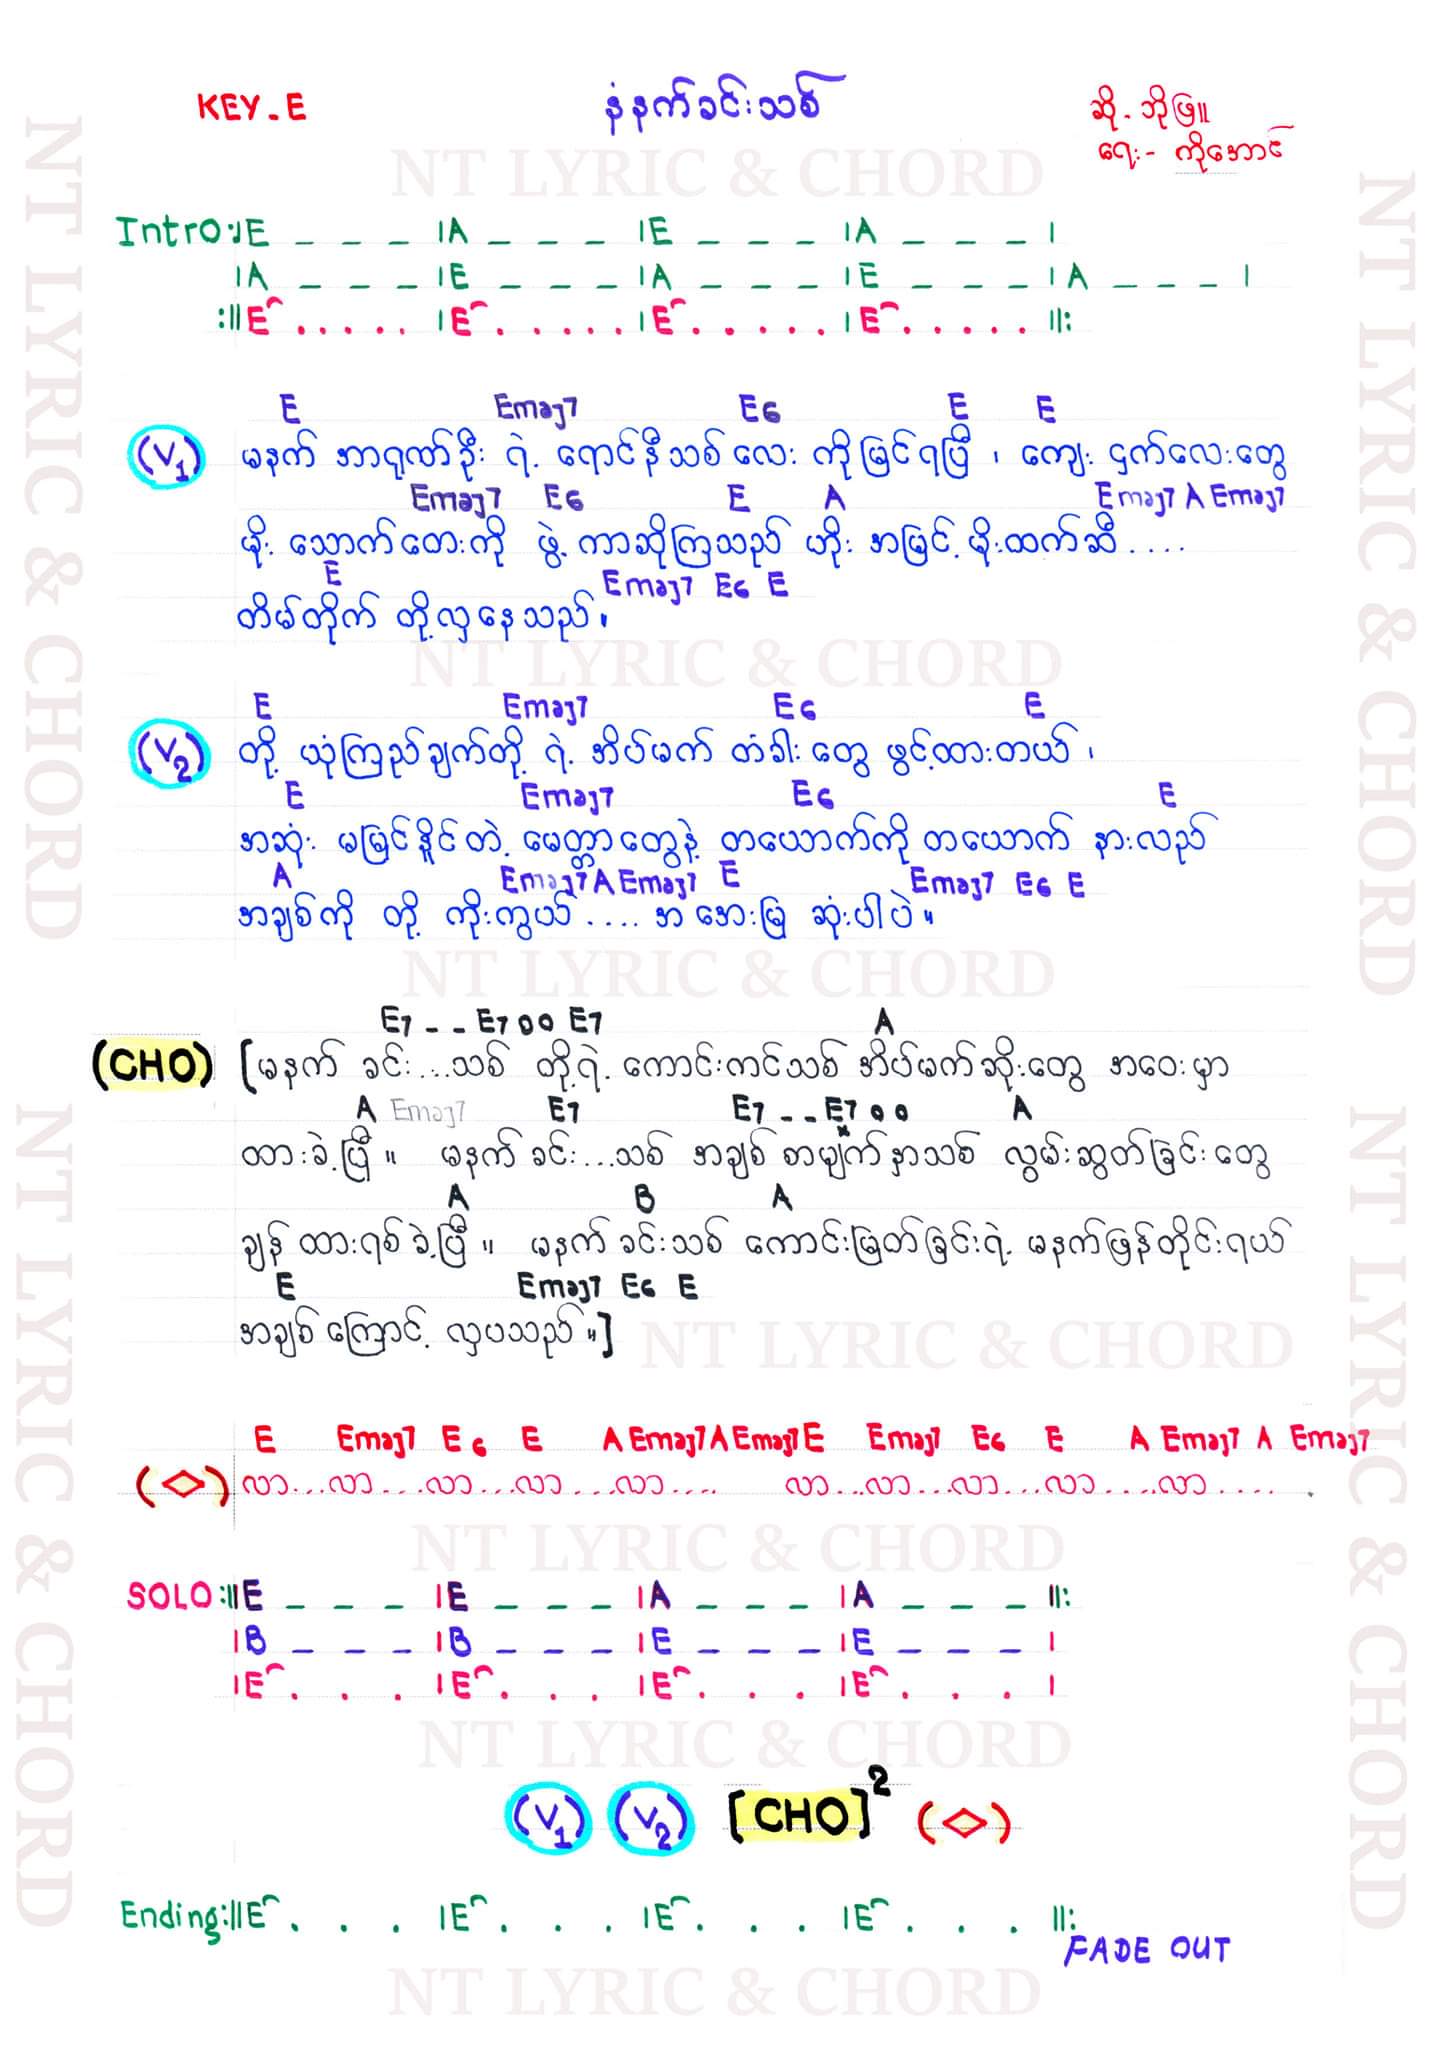 KEY - E
နံနက်ခင်းသစ်
ဆို - ဘိုဖြူ
ရေး - ကိုအောင်
NT LYRIC & CHORD
Intro :| E _ _ _ | A _ _ _ | E _ _ _ | A _ _ _ |
| A _ _ _ | E _ _ _ | A _ _ _ | E _ _ _ | A _ _ _ |
:|| E . . . . . | E . . . . . | E . . . . . | E . . . . . ||:
E Emaj7 E6 E E
(V1) မနက် အာရုဏ်ဦး ရဲ့ ရောင်နီသစ် လေး ကိုမြင်ရပြီ ၊ ကျေး ငှက်လေးတွေ
Emaj7 E6 E A Emaj7 A Emaj7
မိုး သောက်တေးကို ဖွဲ့ ကာဆိုကြသည် ဟိုး အမြင့် မိုးထက်ဆီ ....
E Emaj7 E6 E
တိမ်တိုက် တို့လှနေသည် ။
NT LYRIC & CHORD
E Emaj7 E6 E
(V2) တို့ ယုံကြည်ချက်တို့ ရဲ့ အိပ်မက် တံခါး တွေ ဖွင့်ထားတယ် ၊
E Emaj7 E6 E
အဆုံး မမြင်နိူင်တဲ့ မေတ္တာတွေနဲ့ တယောက်ကို တယောက် နားလည်
A Emaj7 A Emaj7 E Emaj7 E6 E
အချစ်ကို တို့ ကိုးကွယ် .... အ အေးမြ ဆုံးပါပဲ ။
NT LYRIC & CHORD
E7 _ _ E7 o o E7 A
(CHO) [မနက် ခင်း ... သစ် တို့ရဲ့ ကောင်းကင်သစ် အိပ်မက်ဆိုးတွေ အဝေးမှာ
A Emaj7 E7 E7 _ _ E7 o o A
ထားခဲ့ပြီ ။ မနက် ခင်း ... သစ် အချစ် စာမျက်နှာသစ် လွမ်းဆွတ်ခြင်းတွေ
A B A
ချန် ထားရစ်ခဲ့ပြီ ။ မနက် ခင်းသစ် ကောင်းမြတ်ခြင်းရဲ့ မနက်ဖြန်တိုင်းရယ်
E Emaj7 E6 E
အချစ်ကြောင့် လှပသည် ။]
NT LYRIC & CHORD
E Emaj7 E6 E A Emaj7 A Emaj7 E Emaj7 E6 E A Emaj7 A Emaj7
(◇) လာ ... လာ ... လာ ... လာ ... လာ .... လာ ... လာ ... လာ ... လာ .... လာ ....
NT LYRIC & CHORD
SOLO :|| E _ _ _ | E _ _ _ | A _ _ _ | A _ _ _ ||:
| B _ _ _ | B _ _ _ | E _ _ _ | E _ _ _ |
| E . . . | E . . . | E . . . | E . . . |
NT LYRIC & CHORD
(V1) (V2) [CHO]2 (◇)
Ending :|| E . . . | E . . . | E . . . | E . . . ||:
FADE OUT
NT LYRIC & CHORD
NT LYRIC & CHORD
NT LYRIC & CHORD
NT LYRIC & CHORD
NT LYRIC & CHORD